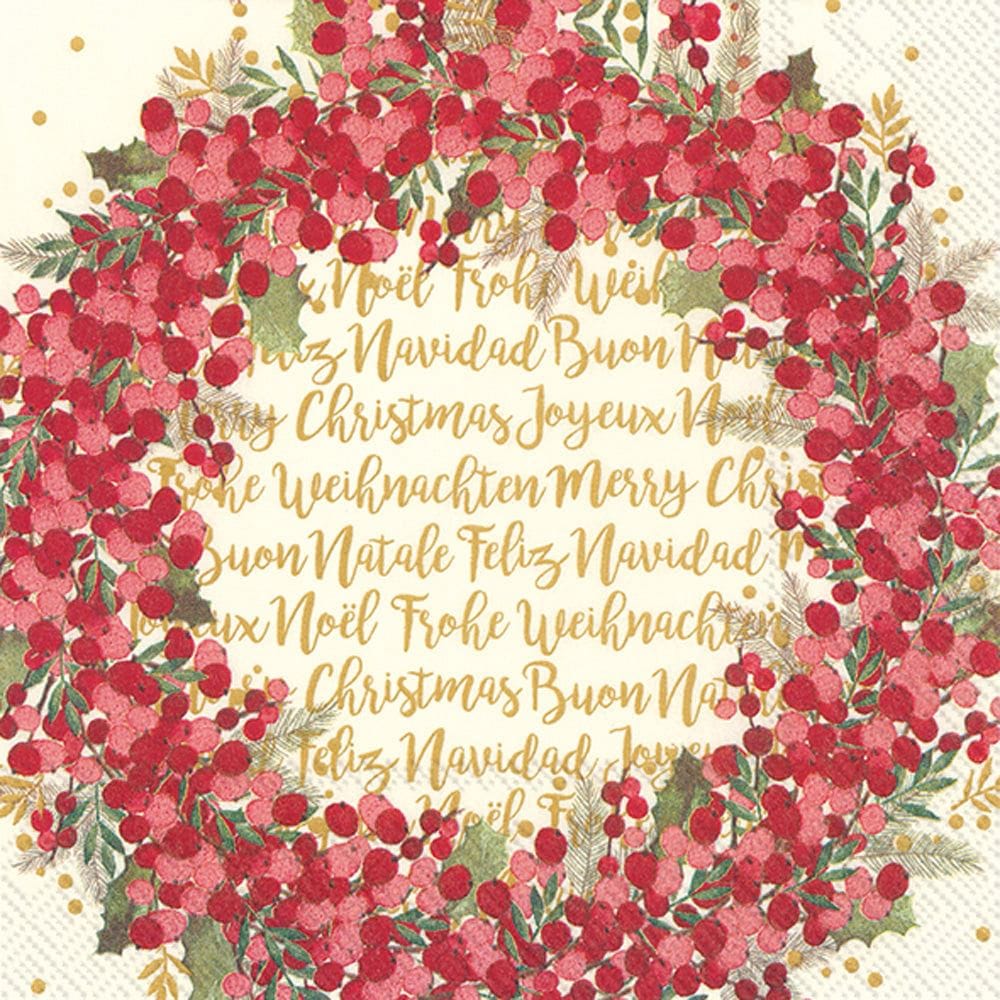 Merry
Noël Frohe Weih
Feliz Navidad Buon Nat
Merry Christmas Joyeux Noël
Frohe Weihnachten Merry Chris
Buon Natale Feliz Navidad M
Joyeux Noël Frohe Weihnachten
Christmas Buon Nat
Feliz Navidad Joyeu
Noël